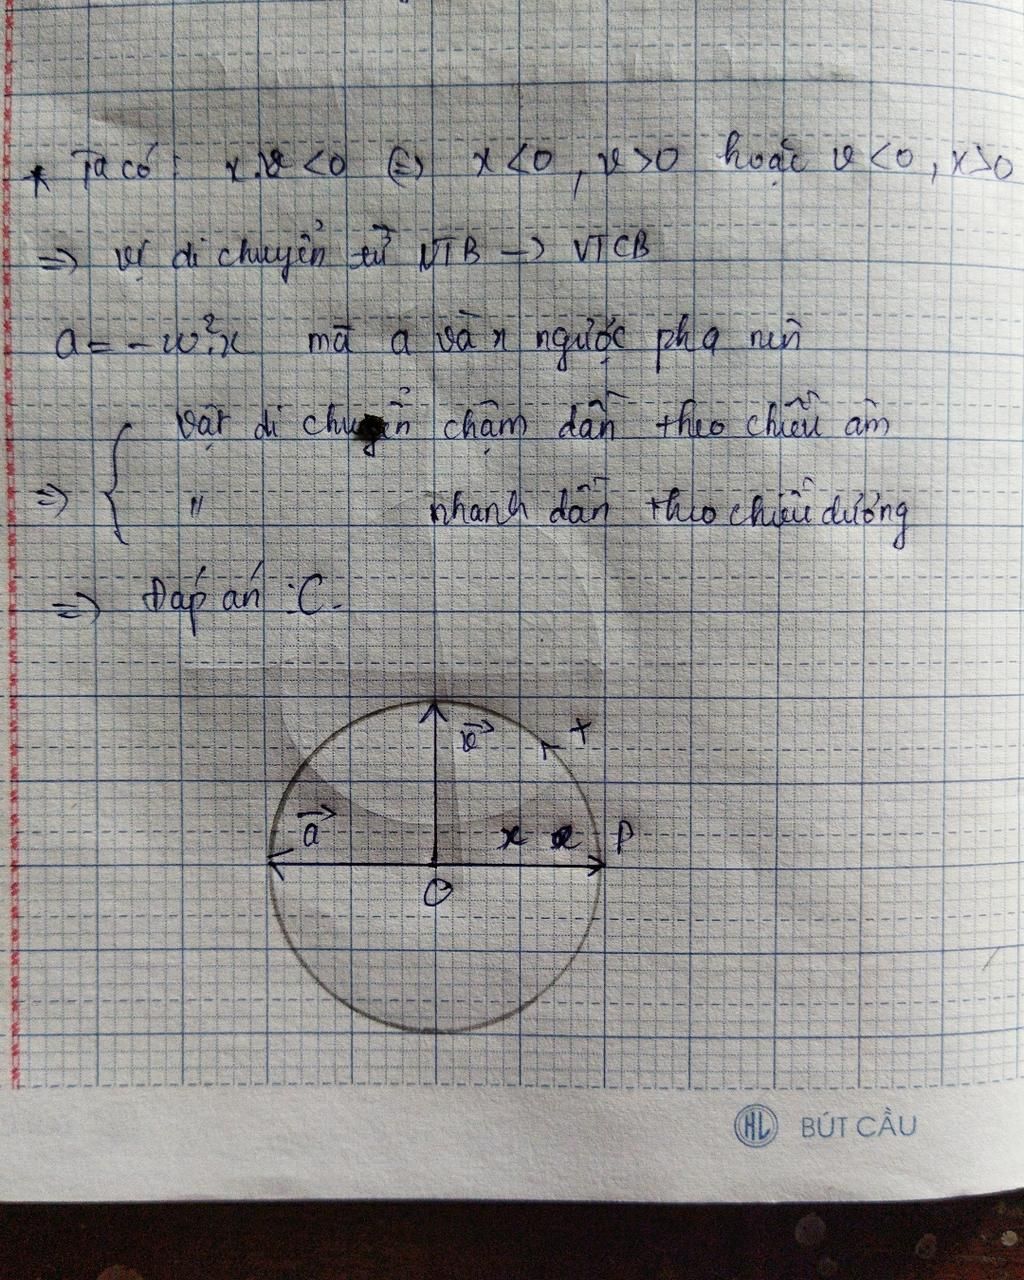 * Ta có: x.v < 0 (=) x < 0, v > 0 hoặc v < 0, x > 0
=) vị di chuyển từ VTB -> VTCB
a = - w².x mà a và x ngược pha nên
vật di chuyển chậm dần theo chiều âm
=) " nhanh dần theo chiều dương
=) Đáp án : C.
v +
a x x P
O
HL BÚT CẦU